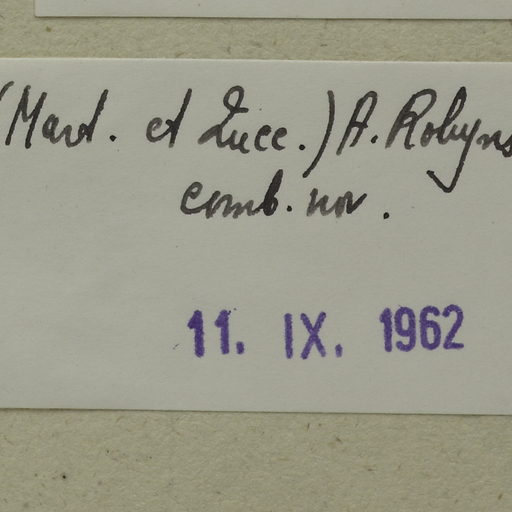 (Mart. et Zucc.) A. Robyns
comb. nov.
11. IX. 1962